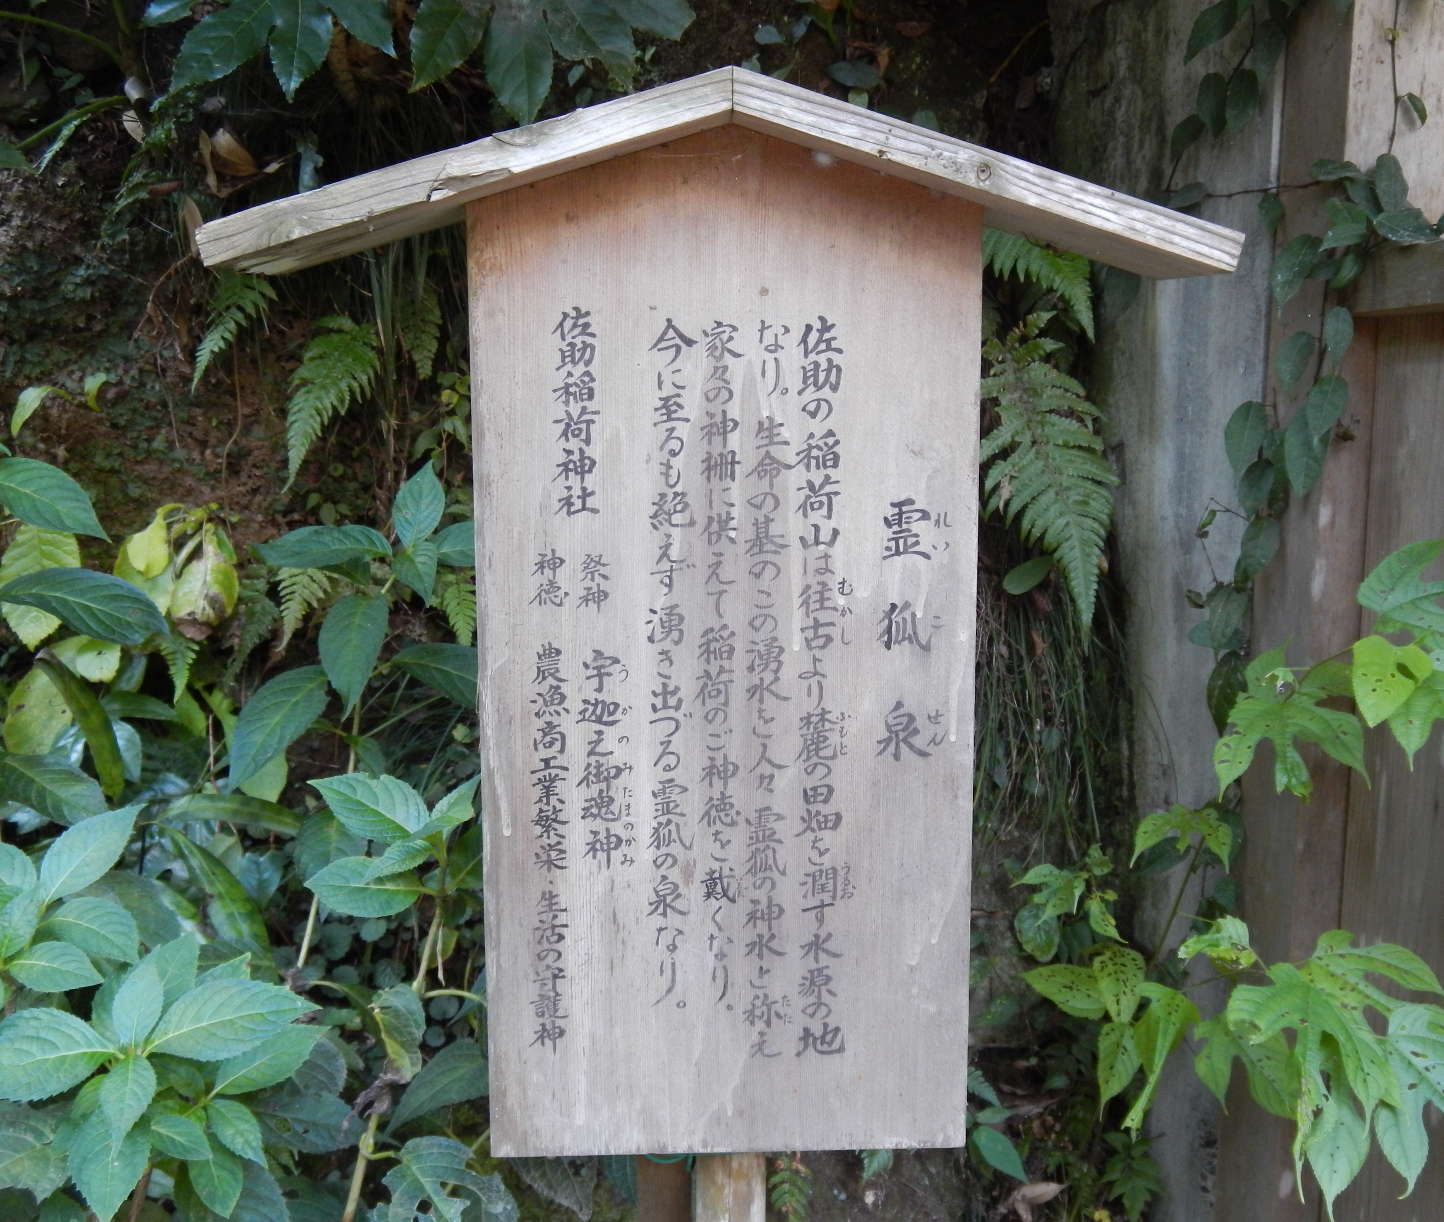 霊狐泉
れいこせん
佐助の稲荷山は往古より麓の田畑を潤す水源の地
むかし ふもと うるお
なり。生命の基のこの湧水を人々霊狐の神水と称え
たた
家々の神棚に供えて稲荷のご神徳を戴くなり。
今に至るも絶えず湧き出づる霊狐の泉なり。
佐助稲荷神社
祭神 宇迦之御魂神
うかのみたまのかみ
神徳 農漁商工業繁栄・生活の守護神